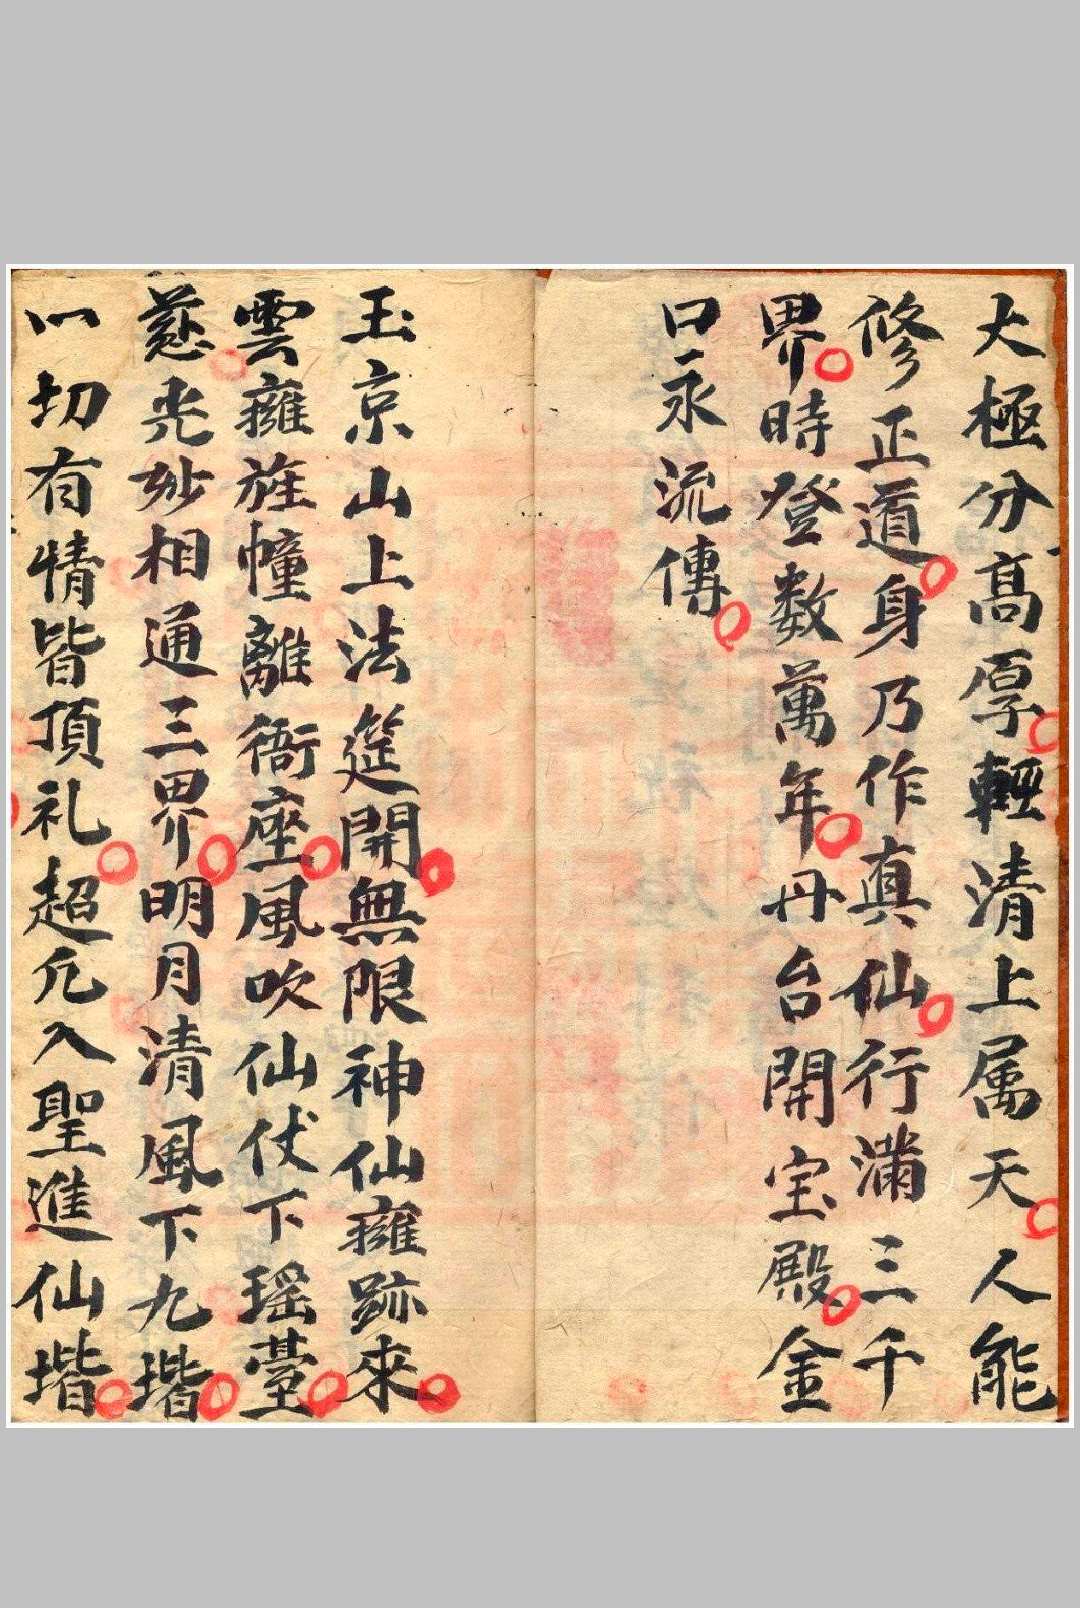 大極分高厚輕清上属天人能
修正道身乃作真仙行滿三千
界時登数萬年丹台開宝殿金
口永流傳
玉京山上法筵開無限神仙擁跡來
雲擁旌幢離衙座風吹仙仗下瑶臺
慈光妙相通三界明月清風下九堦
以切有情皆頂礼超凢入聖進仙堦